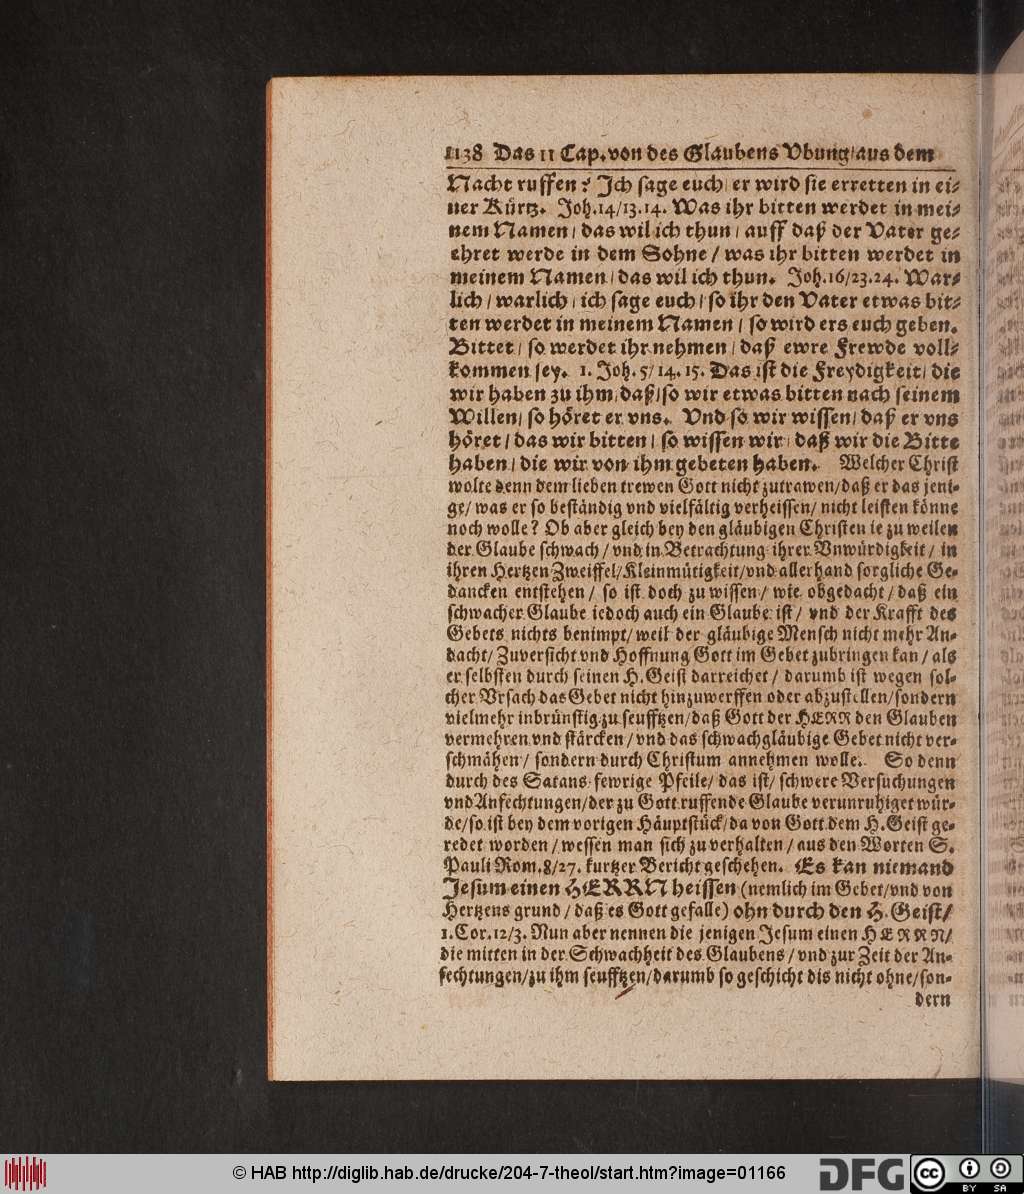 1138 Das 11 Cap. von des Glaubens Vbung/aus dem
Nacht ruffen? Jch sage euch/ er wird sie erretten in ei-
ner Kürtz. Joh.14/13.14. Was ihr bitten werdet in mei-
nem Namen/ das wil ich thun/ auff daß der Vater ge-
ehret werde in dem Sohne/ was ihr bitten werdet in
meinem Namen/ das wil ich thun. Joh.16/23.24. War-
lich/ warlich/ ich sage euch/ so ihr den Vater etwas bit-
ten werdet in meinem Namen/ so wird ers euch geben.
Bittet/ so werdet ihr nehmen/ daß ewre Frewde voll-
kommen sey. 1. Joh. 5/14.15. Das ist die Freydigkeit/ die
wir haben zu ihm/ daß/ so wir etwas bitten nach seinem
Willen/ so höret er vns. Vnd so wir wissen/ daß er vns
höret/ das wir bitten/ so wissen wir/ daß wir die Bitte
haben/ die wir von ihm gebeten haben. Welcher Christ
wolte denn dem lieben trewen Gott nicht zutrawen/daß er das jeni-
ge/ was er so beständig vnd vielfältig verheissen/ nicht leisten könne
noch wolle? Ob aber gleich bey den gläubigen Christen ie zu weilen
der Glaube schwach/ vnd in Betrachtung ihrer Vnwürdigkeit/ in
ihren Hertzen Zweiffel/Kleinmütigkeit/vnd allerhand sorgliche Ge-
dancken entstehen/ so ist doch zu wissen/ wie obgedacht/ daß ein
schwacher Glaube iedoch auch ein Glaube ist/ vnd der Krafft des
Gebets nichts benimpt/ weil der gläubige Mensch nicht mehr An-
dacht/ Zuversicht vnd Hoffnung Gott im Gebet zubringen kan/ als
er selbsten durch seinen H. Geist darreichet/ darumb ist wegen sol-
cher Vrsach das Gebet nicht hinzuwerffen oder abzustellen/sondern
vielmehr inbrünstig zu seufftzen/daß Gott der HERR den Glauben
vermehren vnd stärcken/ vnd das schwachgläubige Gebet nicht ver-
schmähen/ sondern durch Christum annehmen wolle. So denn
durch des Satans fewrige Pfeile/ das ist/ schwere Versuchungen
vnd Anfechtungen/der zu Gott ruffende Glaube verunruhiget wür-
de/so ist bey dem vorigen Häuptstück/da von Gott dem H. Geist ge-
redet worden/ wessen man sich zu verhalten/ aus den Worten S.
Pauli Rom.8/27. kurtzer Bericht geschehen. Es kan niemand
Jesum einen HERRN heissen (nemlich im Gebet/vnd von
Hertzens grund/ daß es Gott gefalle) ohn durch den H. Geist/
1. Cor.12/3. Nun aber nennen die jenigen Jesum einen HERRN/
die mitten in der Schwachheit des Glaubens/ vnd zur Zeit der An-
fechtungen/zu ihm seufftzen/darumb so geschicht dis nicht ohne/son-
dern
© HAB http://diglib.hab.de/drucke/204-7-theol/start.htm?image=01166
DFG
cc BY SA